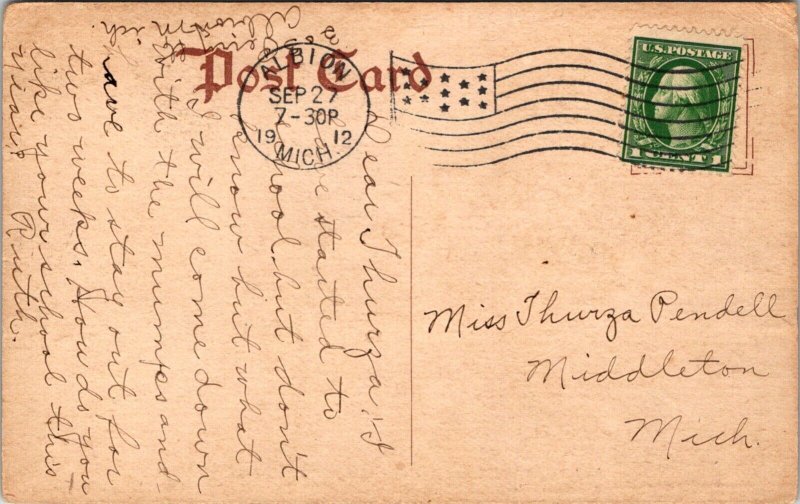 Post Card
ALBION
SEP 27
7-30P
1912
MICH.
U.S. POSTAGE
1 CENT 1
Dear Thurza: I
have started to
school but don't
know but what
I will come down
with the mumps and
have to stay out for
two weeks. How do you
like your school this
year?
Ruth.
Albion Mich
Miss Thurza Pendell
Middleton
Mich.